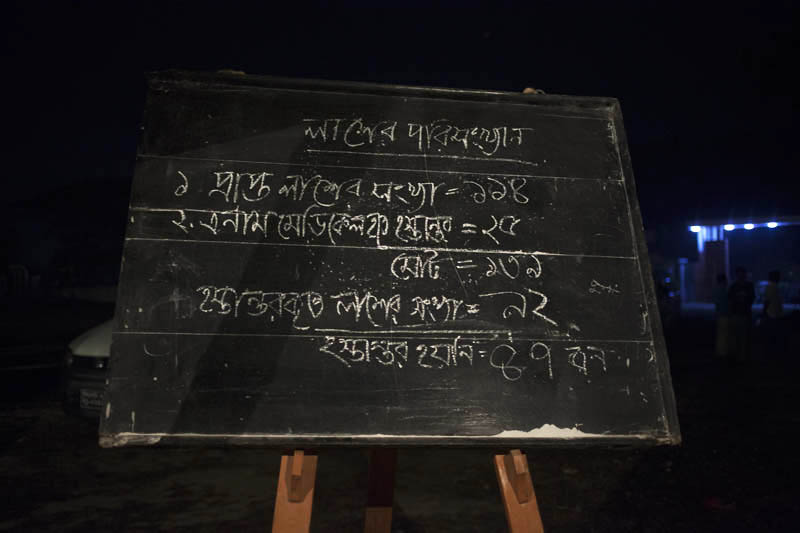 লাশের পরিসংখ্যান
১ প্রাপ্ত লাশের সংখ্যা = ১১৪
২. এনাম মেডিকেল হস্তান্তর = ২৫
মোট = ১৩৯
হস্তান্তরকৃত লাশের সংখ্যা = ৯২
হস্তান্তর হয়নি = ৪৭ জন